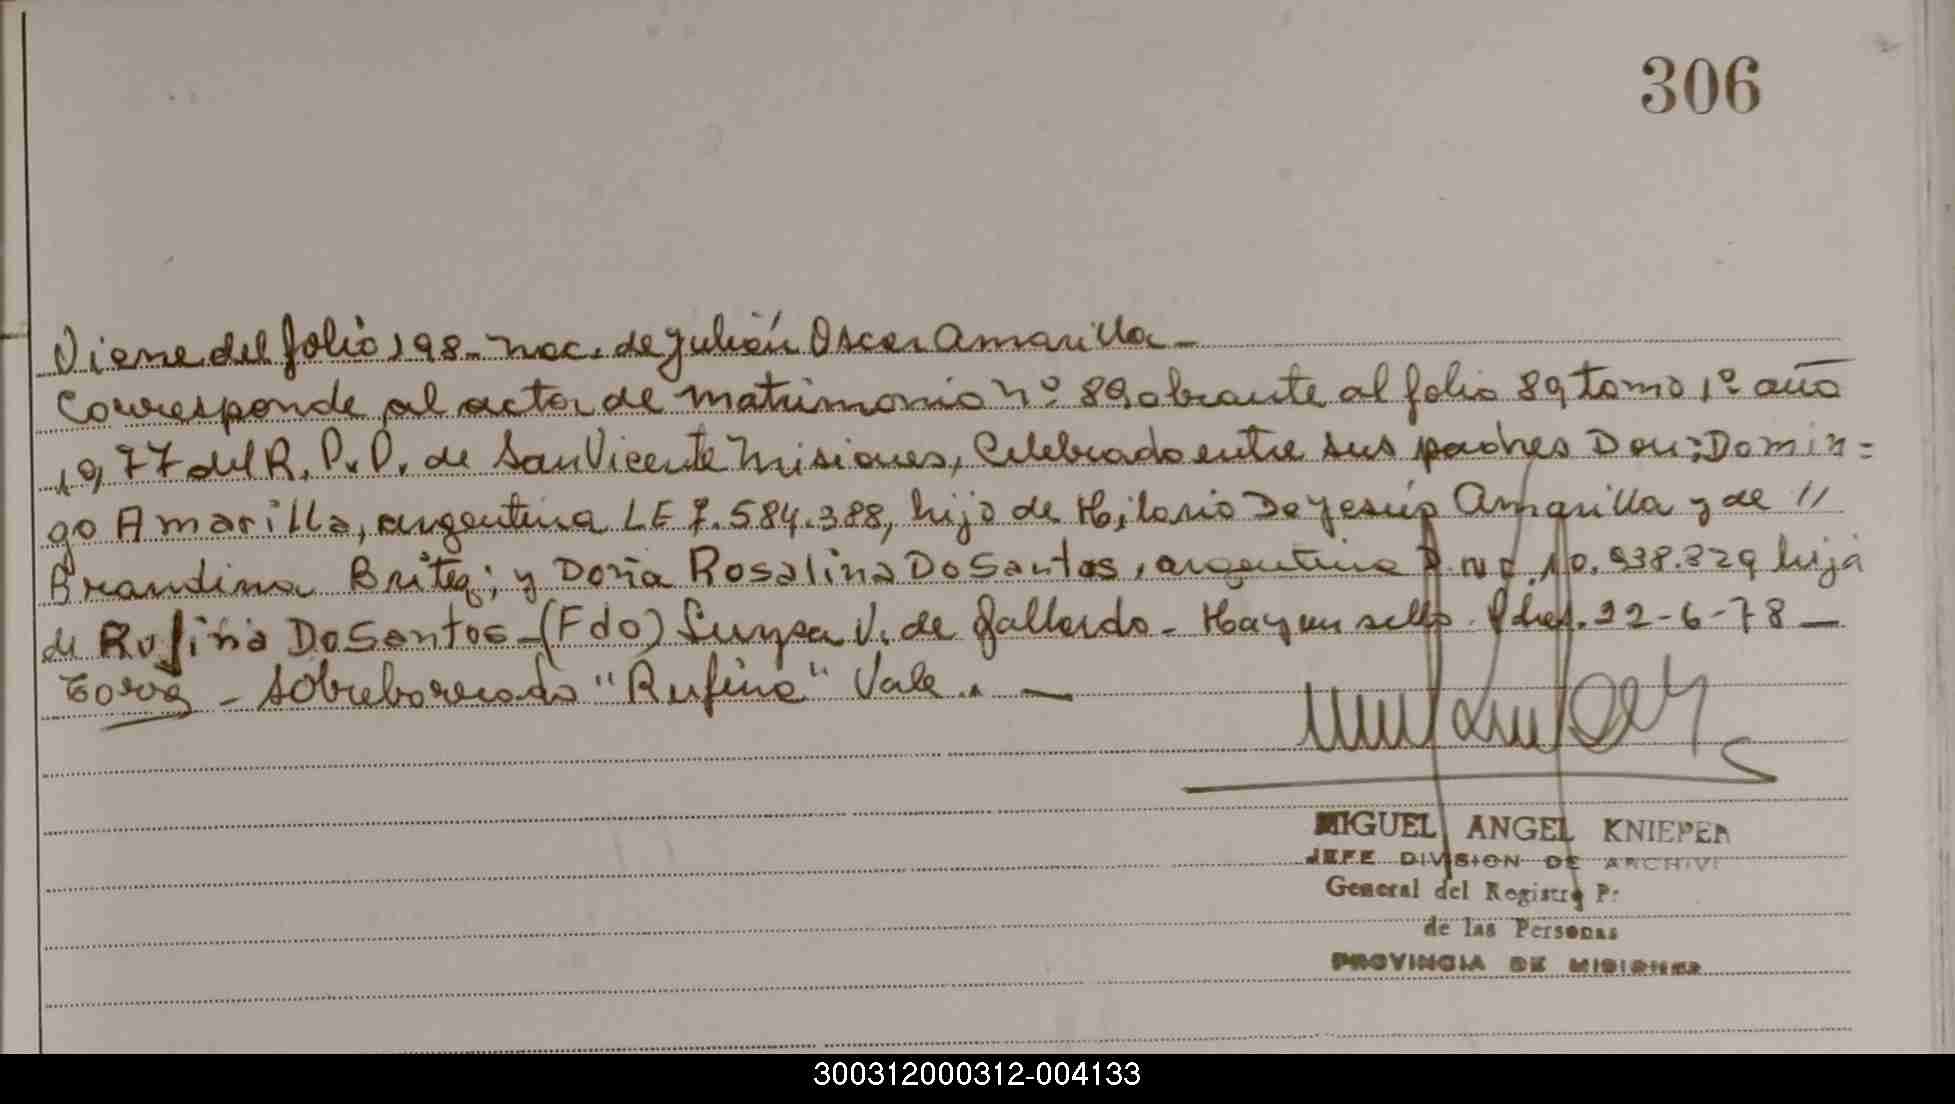 306
Viene del folio 198- nac. de Julián Oscar Amarilla-
Corresponde al acta de matrimonio nº 89 obrante al folio 89 tomo 1º año
1977 del R.P.P. de San Vicente Misiones, Celebrado entre sus padres Don: Domin=
go Amarilla, argentina LE 7.584.388, hijo de Hilario De Jesús Amarilla y de //
Brandina Britez; y Doña Rosalina Do Santos, argentina 10.938.329 hija
de Rufina Do Santos-(Fdo) V. de Gallardo- Hay un sello. 22-6-78-
- sobreborreado "Rufina" Vale.-
MIGUEL ANGEL KNIEPER
JEFE DIVISION DE ARCHIV
General del Registro P
de las Personas
PROVINCIA DE MISIONES
300312000312-004133